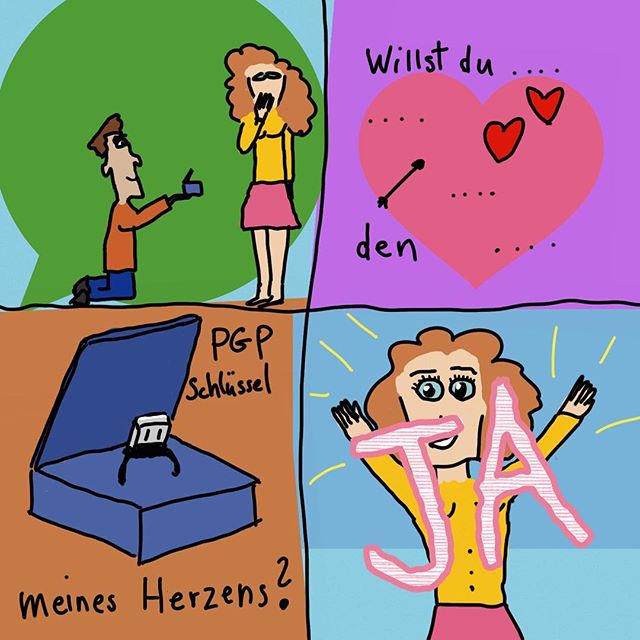 Willst du ....
....
....
den ....
PGP
Schlüssel
meines Herzens?
JA